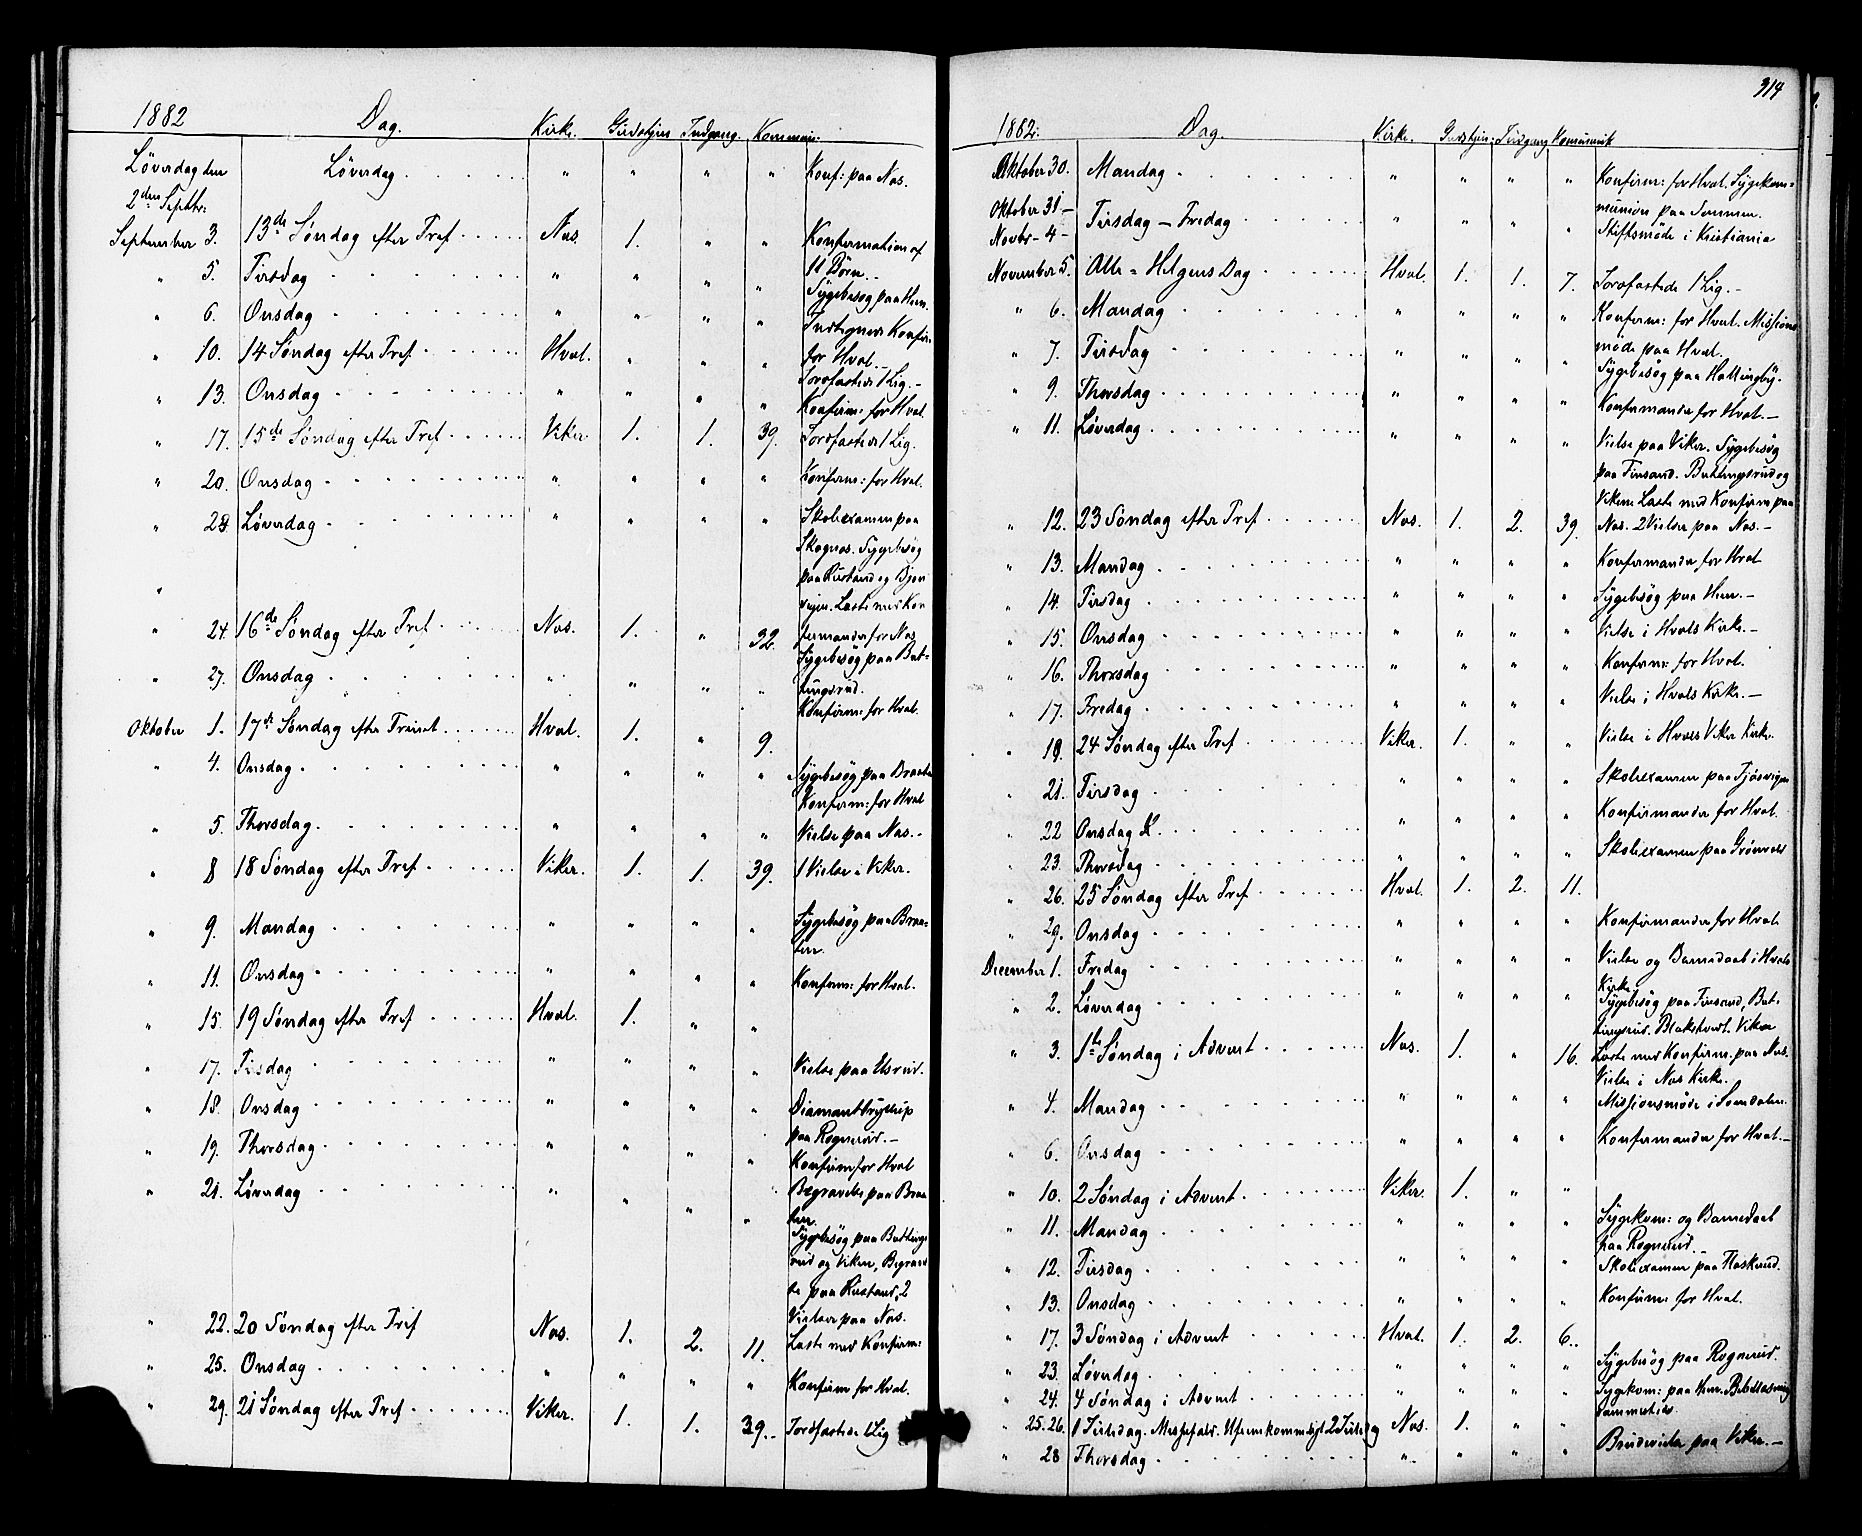 1882 Dag. Kirke. Gudstjen Indgang. Kommuni:
Löverdag den Löverdag " " " " Konf: paa Nas.
2den Septbr:
September 3. 13de Søndag efter Tref Nas. 1. " " Konfirmation af
11 Börn.
" 5. Tirsdag " " " " Sygebesøg paa Hem.
" 6. Onsdag " " " " Indtegnede Konfir:
for Hval.
" 10. 14 Søndag efter Tref Hval. " " " Jordfæstede 1 Lig.
" 13. Onsdag " " " " Konfirm: for Hval
" 17. 15de Søndag efter Tref Viker 1. 1. 39. Jordfæstede 1 Lig.
" 20. Onsdag " " " " Konfirm: for Hval.
" 23. Løverdag " " " " Skoleexamen paa
Skagnæs. Sygebesøg
paa Rustand og Bjon
" vigen. Læste med Kon
" 24. 16de Søndag efter Tref Nas. 1. " 32. firmander for Nas
Sygebesøg paa But-
" 27. Onsdag " " " " tingsrud.
Konfirm: for Hval.
Oktober 1. 17de Søndag efter Treinet Hval. 1. " 9.
" 4. Onsdag " " " " Sygebesøg paa Braaten
Konfirm: for Hval
" 5. Thorsdag " " " " Vielse paa Nas.-
" 8 18 Søndag efter Tref Viker. 1. 1. 39. 1 Vielse i Viker.
" 9. Mandag " " " " Sygebesøg paa Braa-
ten.
" 11. Onsdag " " " " Konfirm: for Hval.
" 15. 19 Søndag efter Tref Hval. 1. " "
" 17. Tirsdag " " " " Vielse paa Elsrud.
" 18. Onsdag " " " " Diamantbryllup
paa Rognerud.-
" 19. Thorsdag " " " " Konfirm for Hval
" 21. Løverdag " " " " Begravelse paa Braa
ten.
Sygebesøg paa Buttings
rud og Viken, Begravel
se paa Rustand, 2
Vielser paa Nas.
" 22. 20 Søndag efter Tref Nas. 1. 2. 11. Læste med Konfirm:
" 25. Onsdag " " " " Konfirm for Hval.
" 29. 21 Søndag efter Tref Viker. 1. 1. 39. Jordfæstede 1 Lig
314
1882. Dag. Kirke. Gudstjen: Indgang Komunik
Oktober 30. Mandag " " " " Konfirm: for Hval. Sygekom=
munion paa Semmen.
Oktober 31- Tirsdag - Fredag " " " " Stiftsmöde i Kristiania
Novbr - 4 -
November 5. Alle = Helgens Dag Hval. 1. 1. 7. Jordfæstede 1 Lig.-
" 6. Mandag " " " " Konfirm: for Hval. Missions
möde paa Hval.
" 7. Tirsdag " " " " Sygebesøg paa Hallingby.
" 9. Thorsdag " " " " Konfirmander for Hval.-
" 11. Løverdag " " " " Vielse paa Viker. Sygebesøg
paa Finsand. Buttingsrud og
Viken Læste med Konfirm paa
" 12. 23 Søndag efter Tref Nas. 1. 2. 39. Nas. 2 Vielser paa Nas.-
" 13. Mandag " " " " Konfirmander for Hval
" 14. Tirsdag " " " " Sygebesøg paa Hem.-
" 15. Onsdag " " " " Vielse i Hvals Kirke.-
" 16. Thorsdag " " " " Konfirm: for Hval.
" 17. Fredag " " " " Vielse i Hvals Kirke.-
" 19. 24 Søndag efter Tref Viker. 1. " " Vielse i Hvals Viker Kirke.
" 21. Tirsdag " " " " Skoleexamen paa Tjösvigen
" 22 Onsdag " " " " Konfirmander for Hval.
" 23. Thorsdag " " " " Skoleexamen paa Grönvold
" 26. 25 Søndag efter Tref Hval. 1. 2. 11.
" 29. Onsdag " " " " Konfirmander for Hval
December 1. Fredag " " " " Vielse og Barnedaab i Hvals
Kirke
" 2. Løverdag " " " " Sygebesøg paa Finsand, But-
tingsrud. Blakstvedt. Viken
" 3. 1ste Søndag i Advent Nas. 1. " 16. Læste med Konfirm. paa Nas.
Vielse i Nas Kirke.
" 4. Mandag " " " " Missionsmöde i Somdalen.
" 6. Onsdag " " " " Konfirmander for Hval.-
" 10. 2 Søndag i Advent Viker. 1. " "
" 11. Mandag " " " " Sygekom: og Barnedaab
paa Rognerud.-
" 12. Tirsdag " " " " Skoleexamen paa Haskerud.
" 13. Onsdag " " " " Konfirm: for Hval.
" 17. 3 Søndag i Advent Hval. 1. 2. 6.
" 23. Løverdag " " " " Sygebesøg paa Rognerud.
" 24. 4 Søndag i Advent " " " " Sygekom: paa Hem. Bibellæsning
sammesteds
" 25. 26. 1 Juledag. Messefald. Uframkommeligt 2 Juledag Nas. 1. " "
" 28 Thorsdag " " " " Brudevielse paa Viker.-